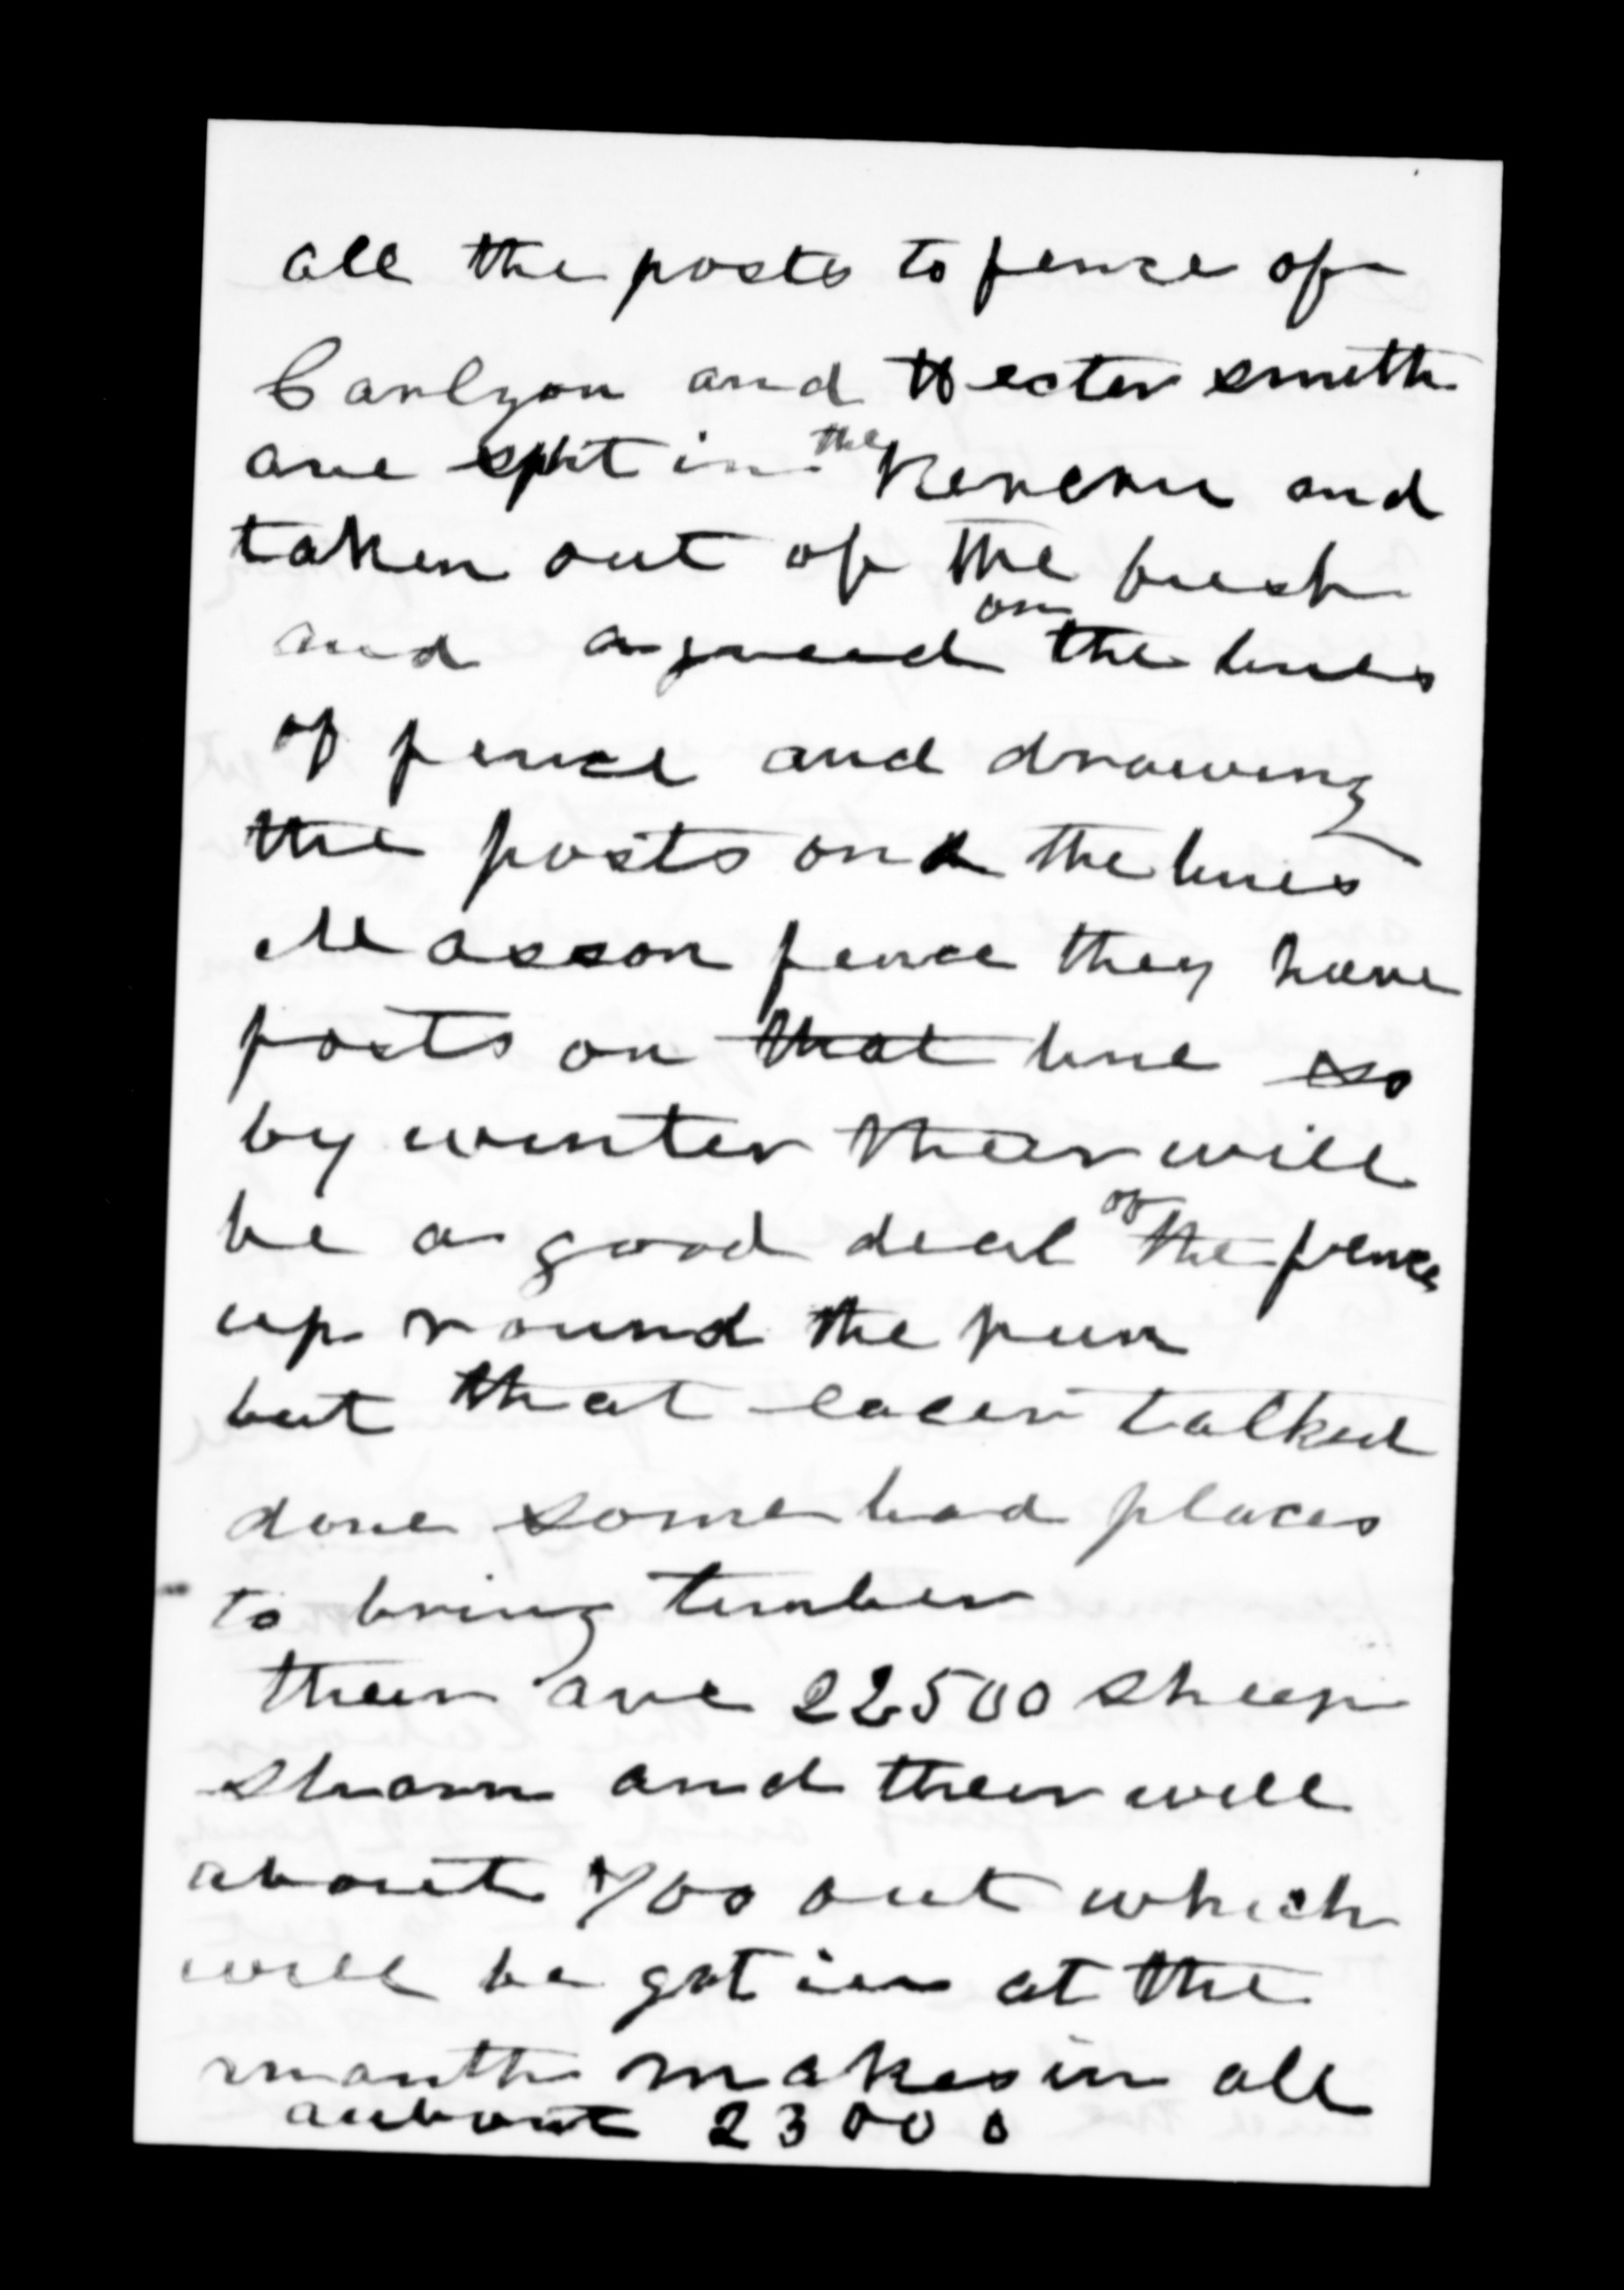 all the posts to fence of
Carlyon and Hecter smith
are split in the Rererau and
taken out of the bush
and agreed on the lines
of fence and drawing
the posts on the lines
Masson fence they have
posts on that line so
by winter their will
be a good deal of the fence
up round the run
but that easer talked
done some bad places
to bring timber
their are 22500 sheep
shorn and their will
about 700 out which
will be got in at the
month makes in all
aubout 23000